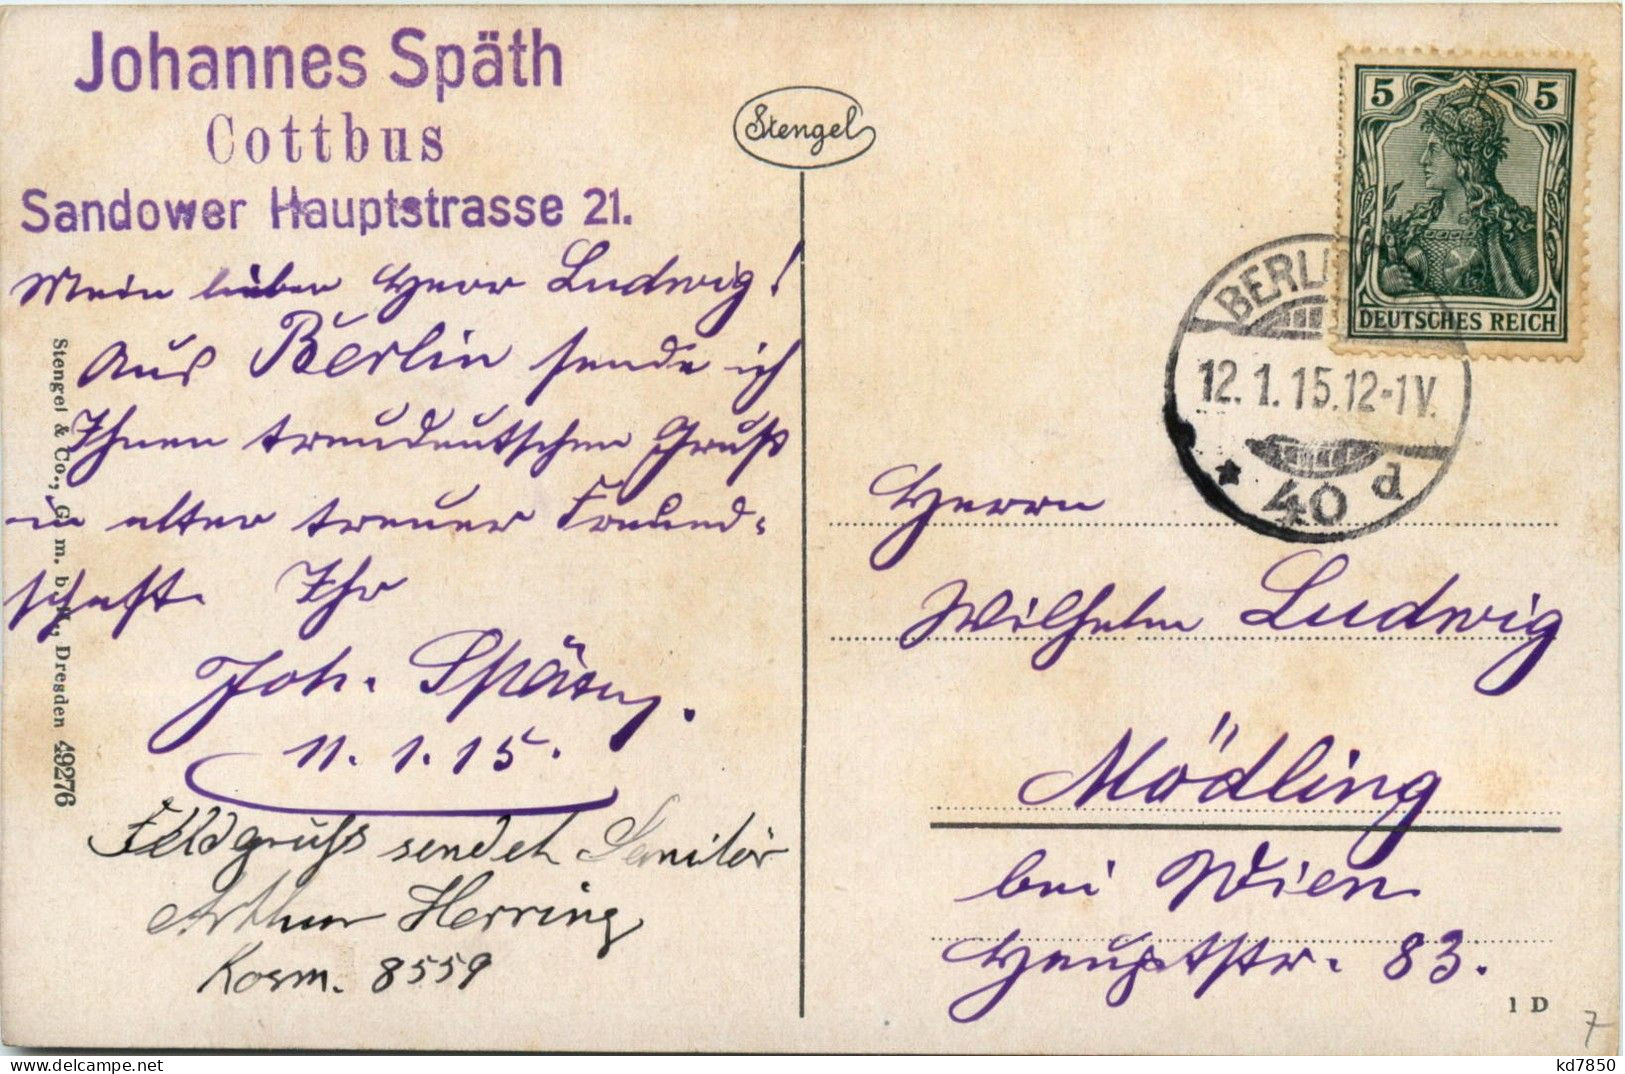 Johannes Späth
Cottbus
Sandower Hauptstrasse 21.
Mein lieber Herr Ludwig!
Aus Berlin sende ich
Ihnen treudeutschen Gruß
in alter treuer Freund-
schaft. Ihr
Joh. Späth.
11.1.15.
Feldgruss sendet Sanitär
Arthur Herring
Kosm. 8559
Stengel & Co., G. m. b. H., Dresden 49276
Stengel
5 5
DEUTSCHES REICH
BERLIN
12.1.15.12-1V.
* 40 d
Herrn
Wilhelm Ludwig
Mödling
bei Wien
Hauptstr. 83.
1 D
7
kd7850